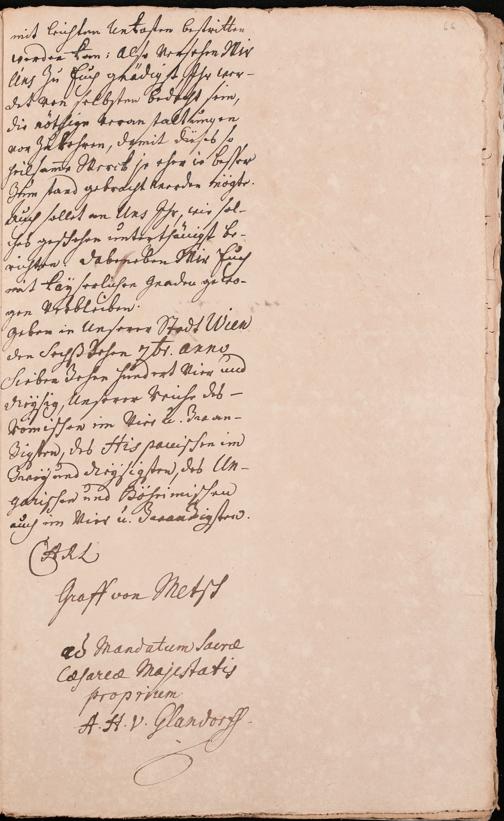 mit leichten Unkosten bestritten
werden kan; Als versehen Wir
Uns zu Euch gnädigst Ihr wer-
det von selbsten bedacht sein,
die nöthige Veranstaltungen
vorzukehren, damit dieses so
heilsame Werck je eher je besser
zum stand gebracht werden mögte.
Auch sollet an Uns Ihr, wie sol-
ches geschehen unterthänigst be-
richten. Dabeneben Wir Euch
mit Kayserlichen Gnaden gewo-
gen Verbleiben.
Geben in Unserer Stadt Wien
den Sechszehen 7br. anno
Siebenzehen hundert Vier und
dreysig, Unserer Reiche des-
Römischen im Vier u. Zwan-
zigsten, des Hispanischen im
Zwey und dreysigsten, des Un-
garischen und Böheimischen
auch im Vier u. Zwanzigsten.
CARL
Graff von Metsch
ad Mandatum Sacræ
Cæsareæ Majestatis
proprium
A. H. v. Glandorff.
66